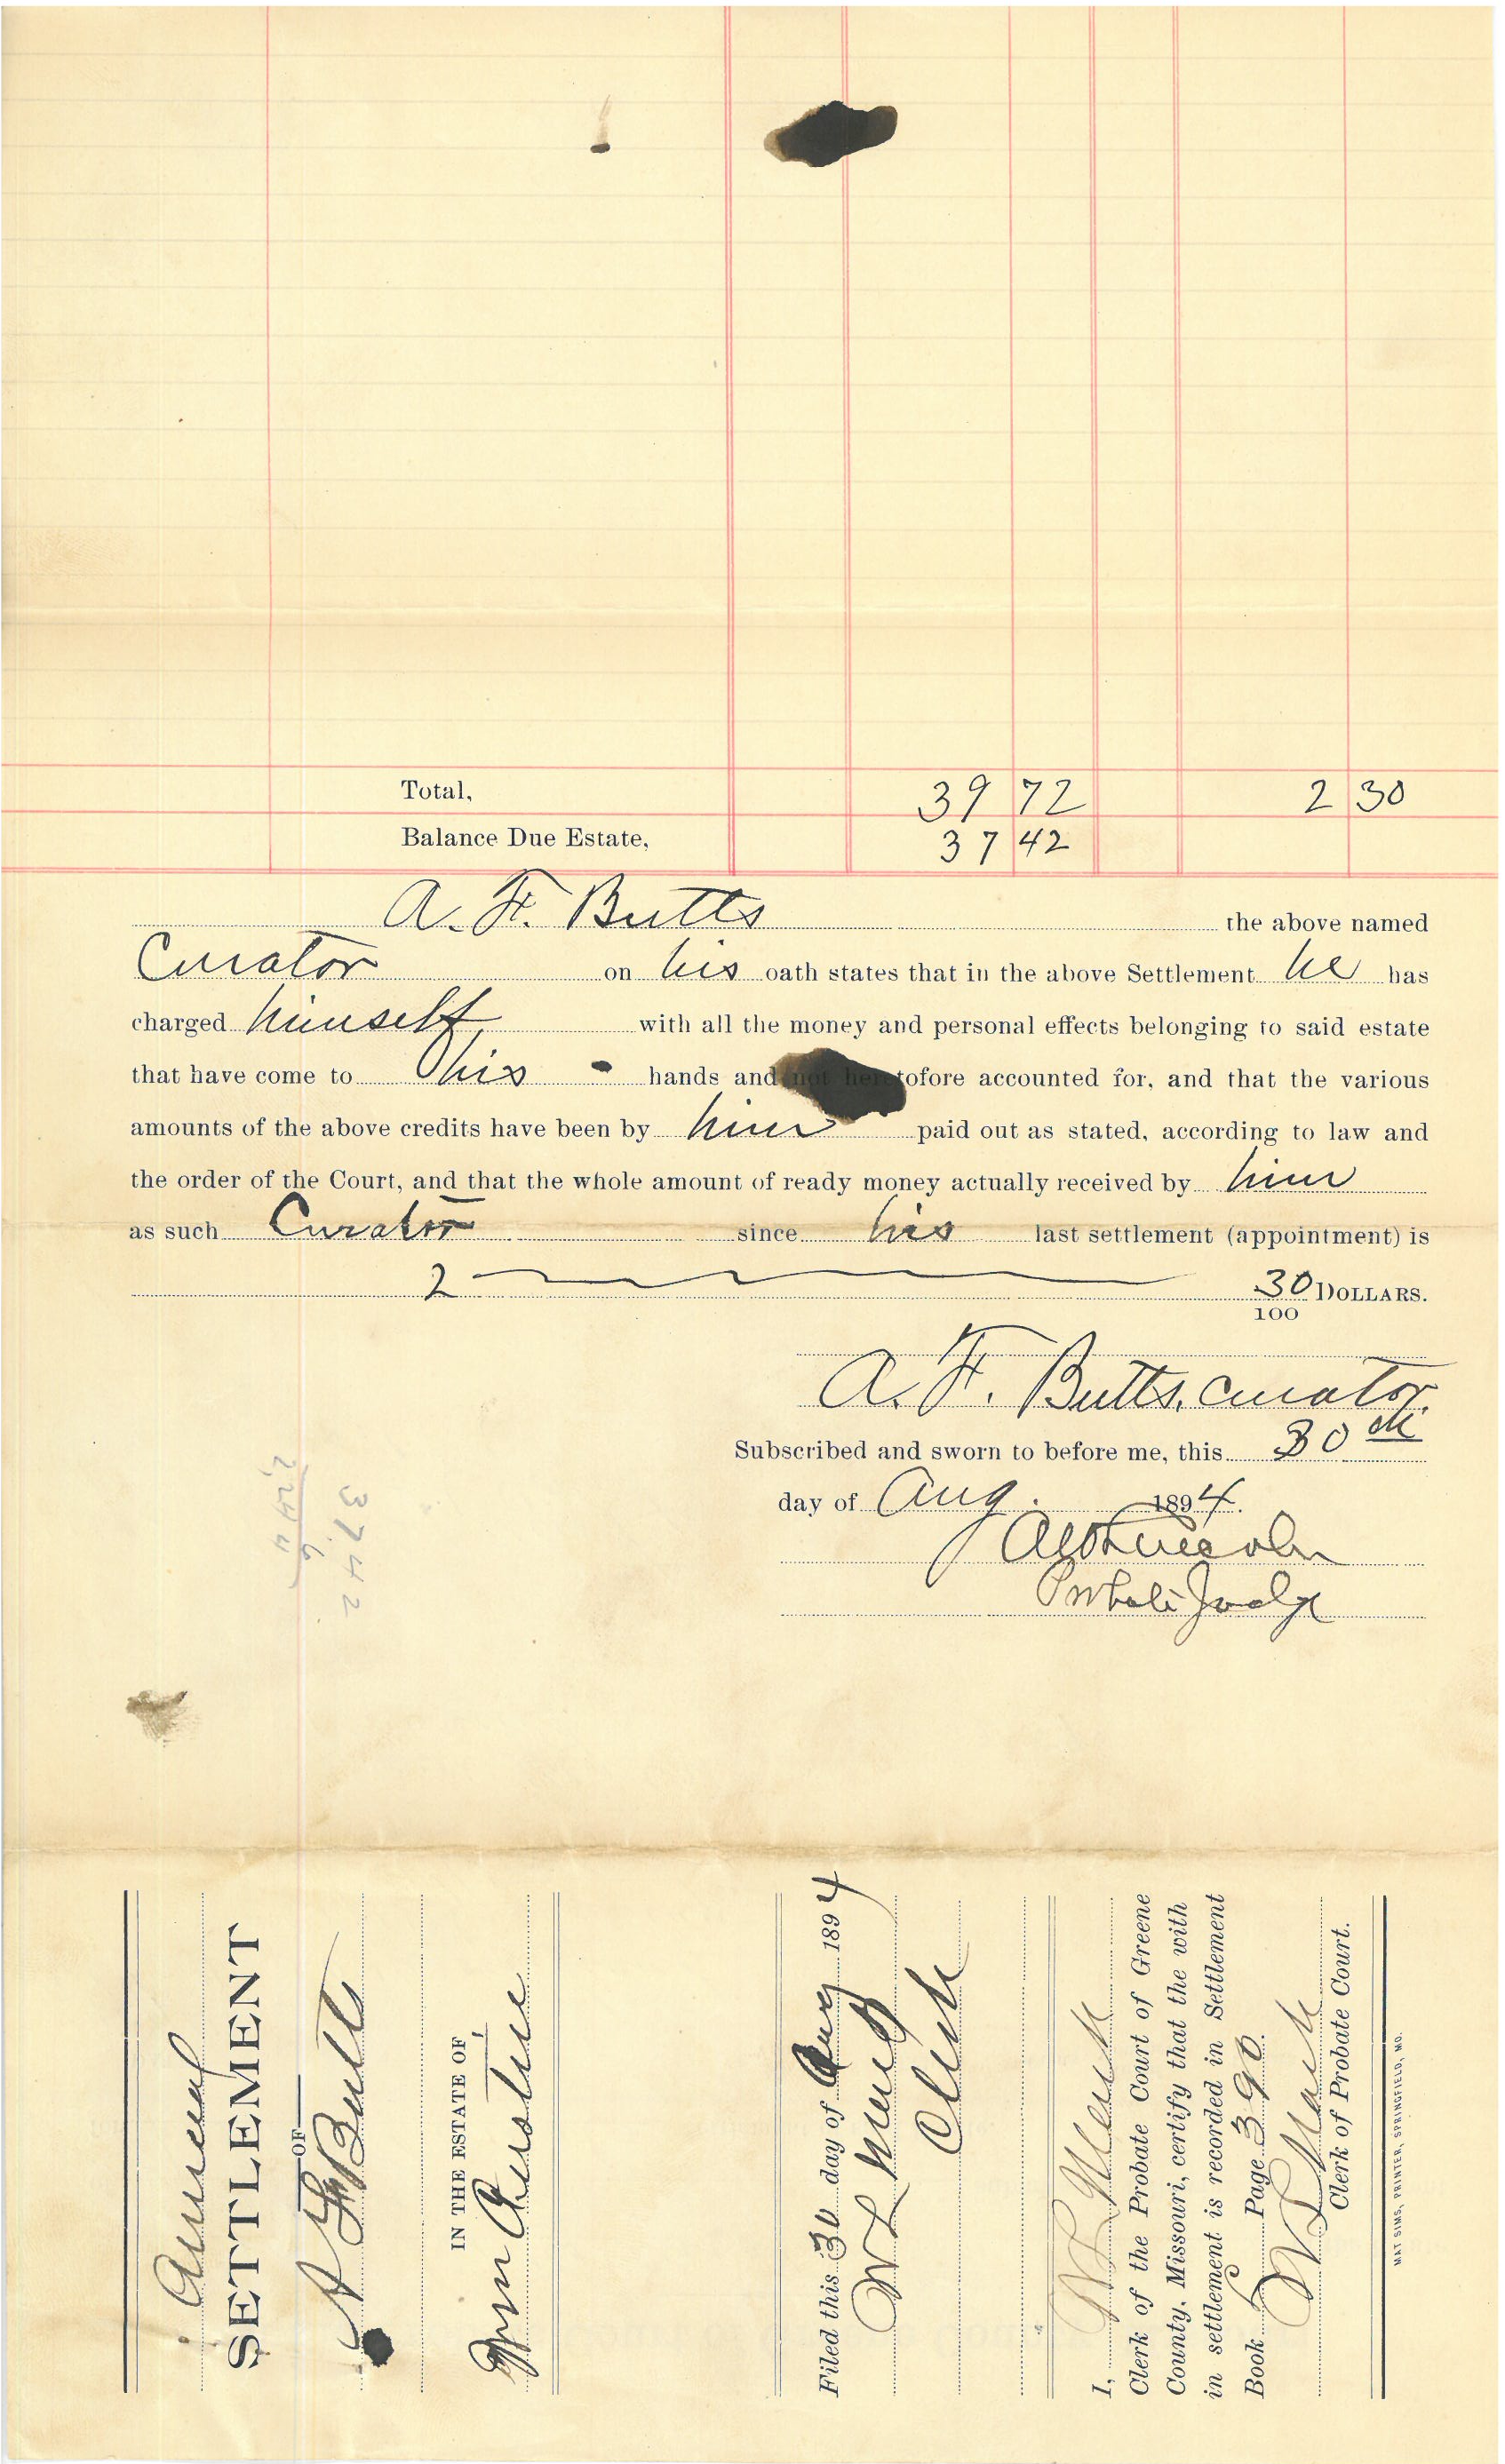 Total, 39 72 2 30
Balance Due Estate, 37 42
A. F. Butts the above named
Curator on his oath states that in the above Settlement he has
charged himself with all the money and personal effects belonging to said estate
that have come to his hands and not heretofore accounted for, and that the various
amounts of the above credits have been by him paid out as stated, according to law and
the order of the Court, and that the whole amount of ready money actually received by him
as such Curator since his last settlement (appointment) is
2 30/100 DOLLARS.
A. F. Butts, curator.
Subscribed and sworn to before me, this 30th
day of Aug. 1894.
Probate Judge
37 42
Annual
SETTLEMENT
OF
A F Butts
IN THE ESTATE OF
Wm Austine
Filed this 30 day of Aug 1894
W L
Clerk
I, W L
Clerk of the Probate Court of Greene
County, Missouri, certify that the with
in settlement is recorded in Settlement
Book Page 390.
W L
Clerk of Probate Court.
MAT SIMS, PRINTER, SPRINGFIELD, MO.